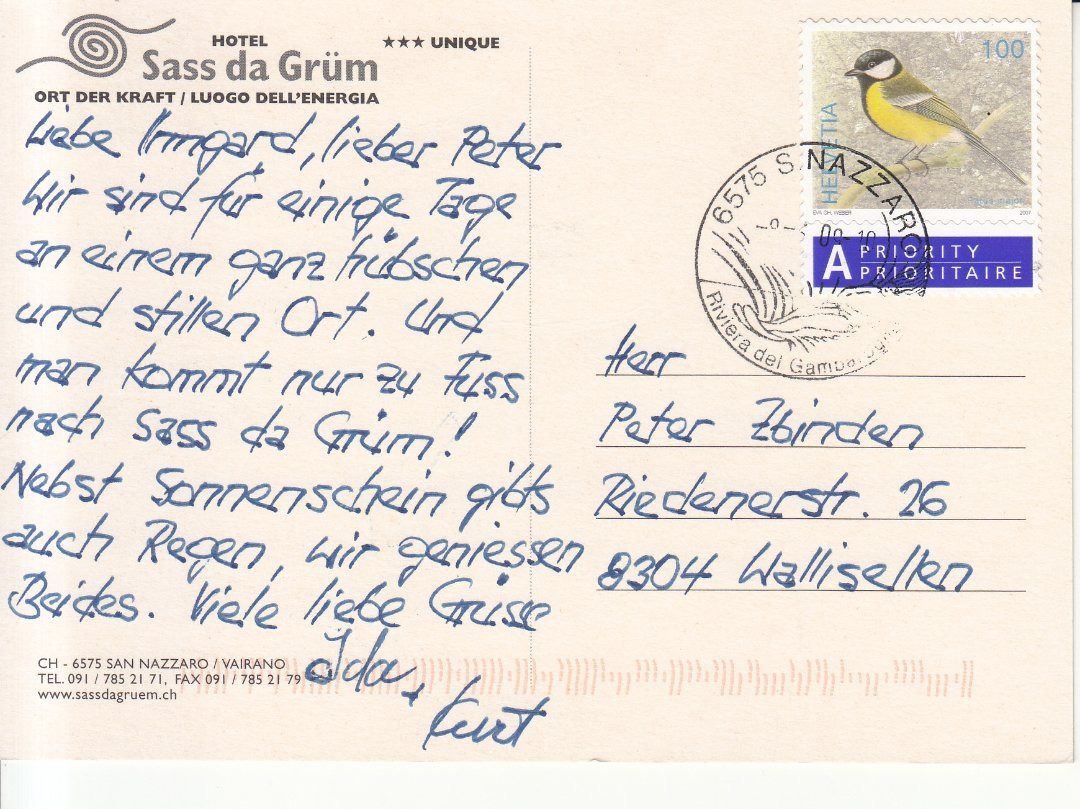 HOTEL ★★★ UNIQUE
Sass da Grüm
ORT DER KRAFT / LUOGO DELL'ENERGIA
Liebe Irmgard, lieber Peter
Wir sind für einige Tage
an einem ganz hübschen
und stillen Ort. Und
man kommt nur zu Fuss
nach Sass da Grüm!
Nebst Sonnenschein gibts
auch Regen, wir geniessen
Beides. Viele liebe Grüsse
Ida
+ Kurt
CH - 6575 SAN NAZZARO / VAIRANO
TEL. 091 / 785 21 71, FAX 091 / 785 21 79
www.sassdagruem.ch
100
HELVETIA
Parus major
EVA CH. WEBER 2007
A PRIORITY
PRIORITAIRE
6575 S. NAZZARO
09-10
Riviera del
Herr
Peter Zbinden
Riedenerstr. 26
8304 Wallisellen